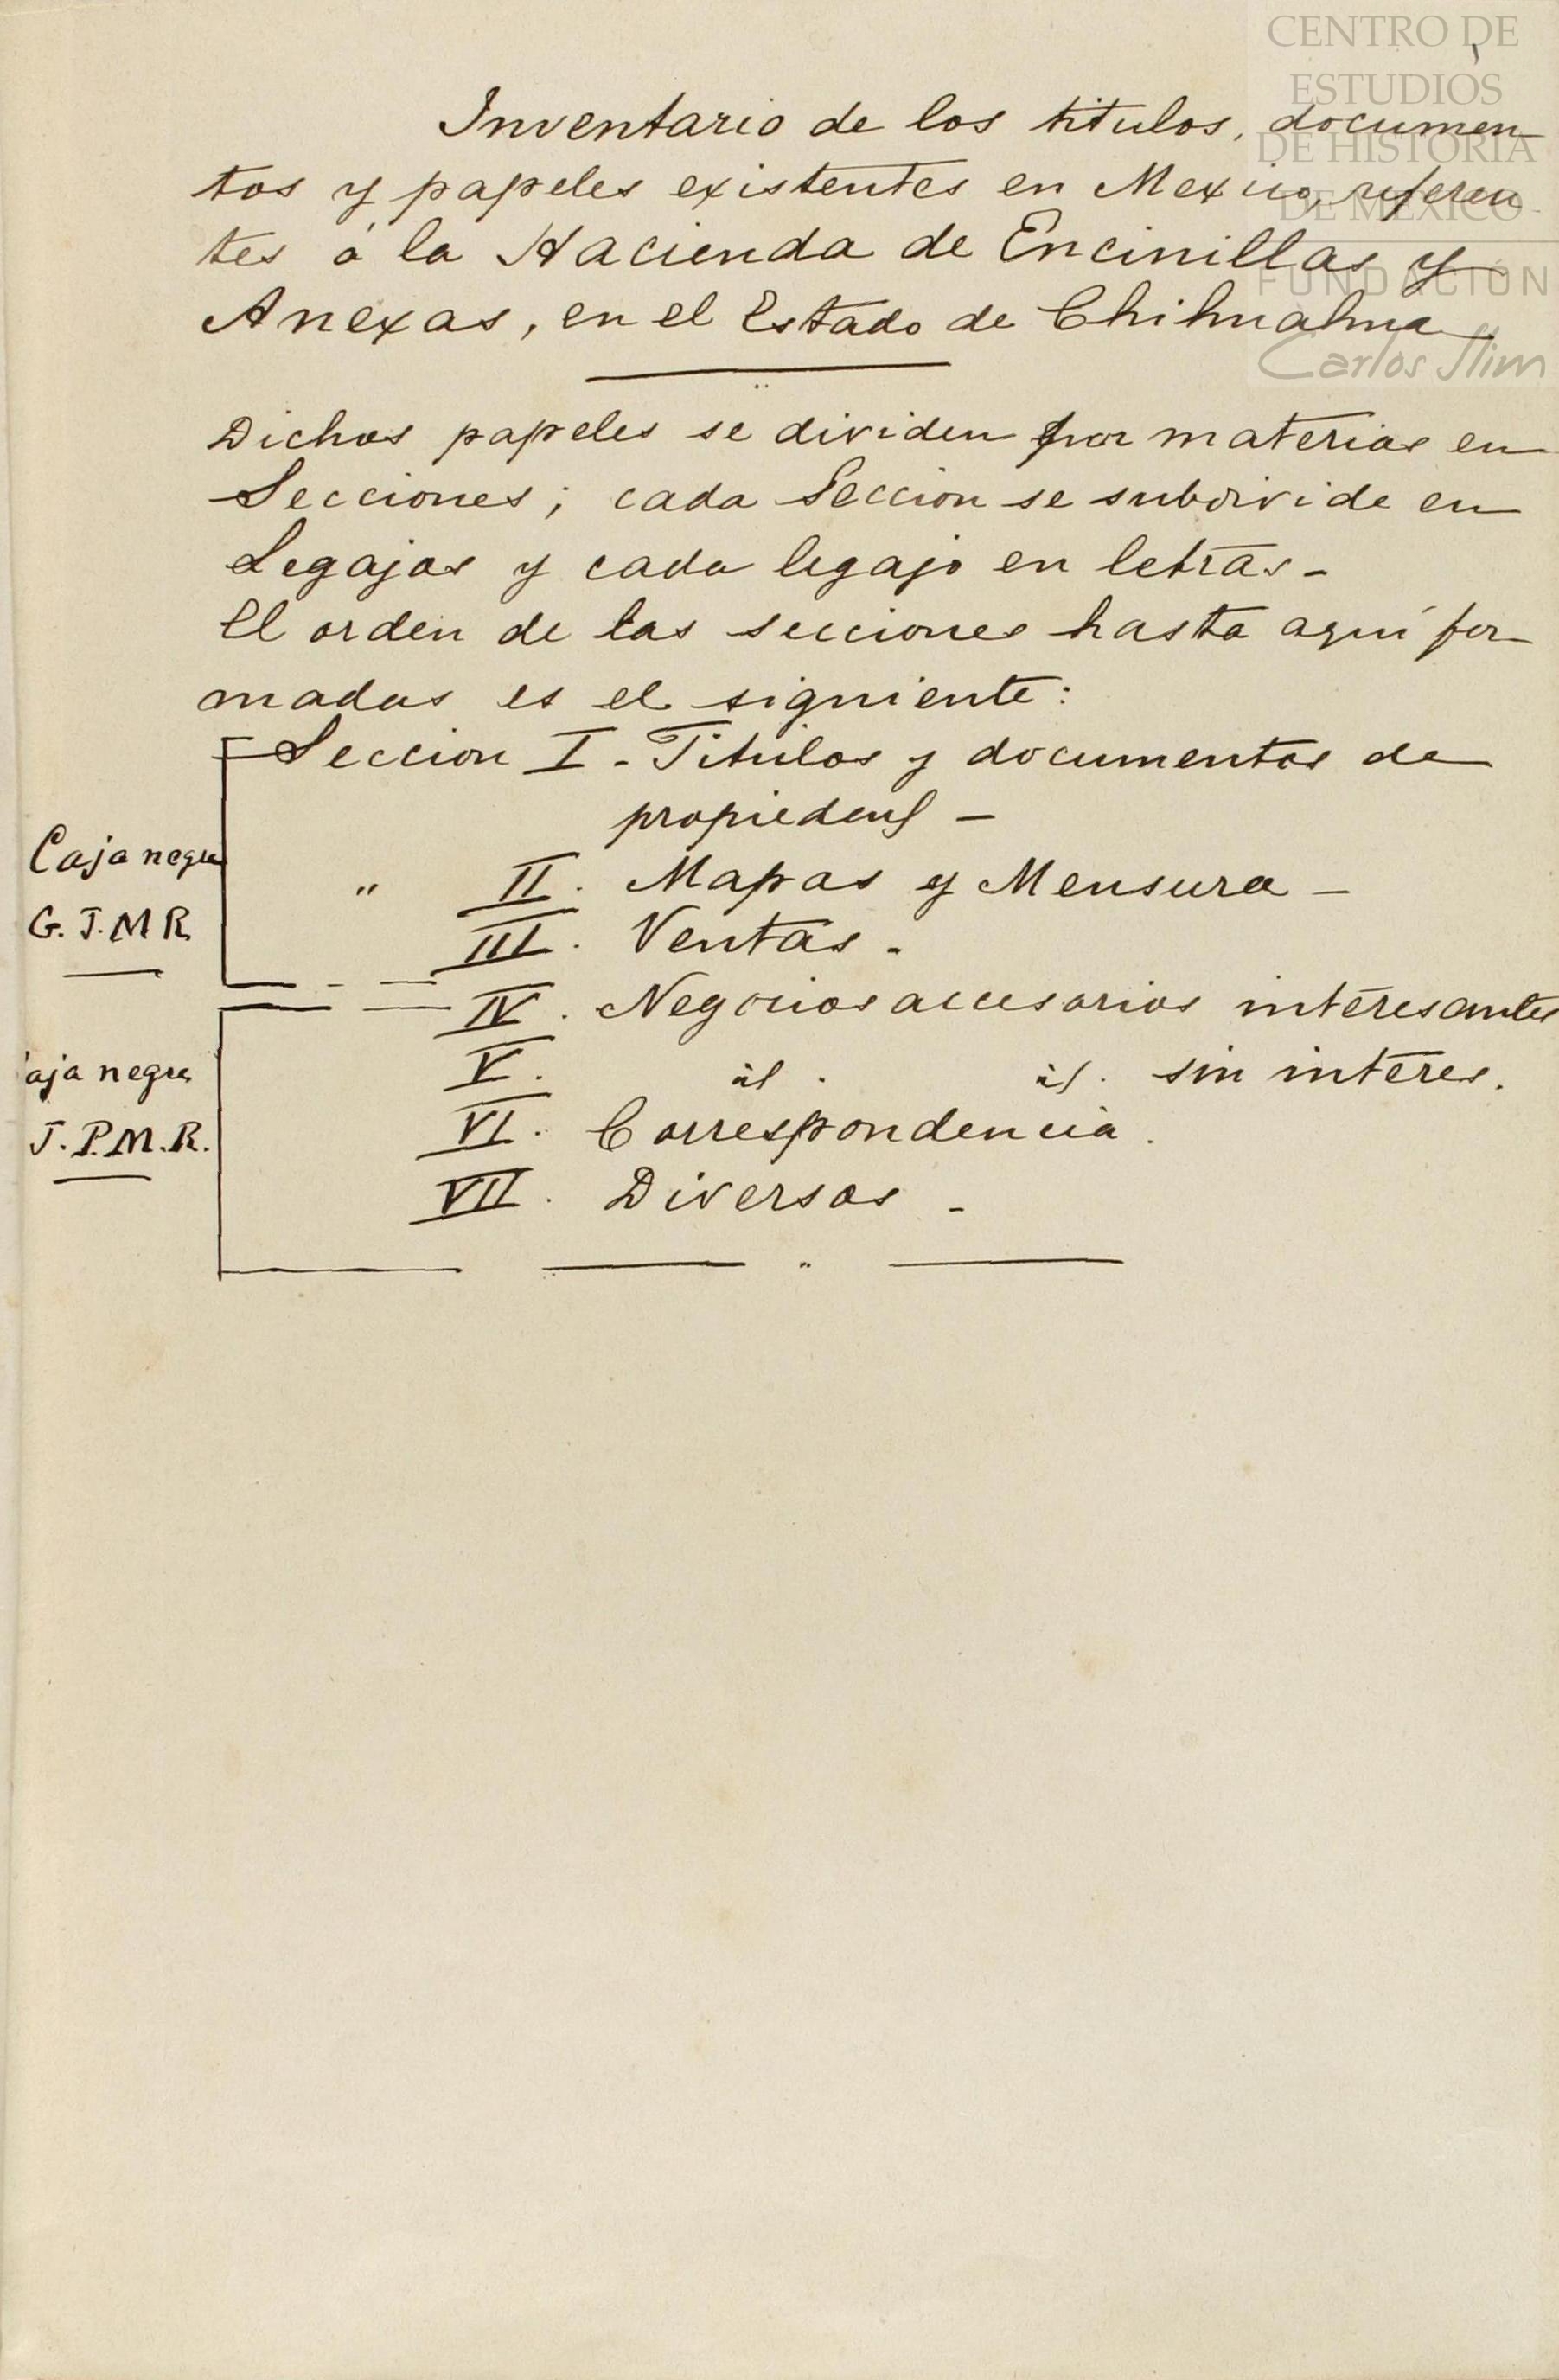 CENTRO DE
ESTUDIOS
DE HISTORIA
DE MEXICO
FUNDACIÓN
Carlos Slim
Inventario de los titulos, documen-
tos y papeles existentes en Mexico, referen
tes á la Hacienda de Encinillas y
Anexas, en el Estado de Chihuahua
Dichos papeles se dividen por materias en
Secciones; cada Seccion se subdivide en
Legajos y cada legajo en letras-
El orden de las secciones hasta aquí for-
madas es el siguiente:
Seccion I - Titulos y documentos de
propiedad -
Caja negra
G. J. M R
" II. Mapas y Mensura -
III. Ventas -
IV. Negocios accesorios interesantes
V. id. id. sin interes.
aja negra
J. P. M. R.
VI. Correspondencia.
VII. Diversos -